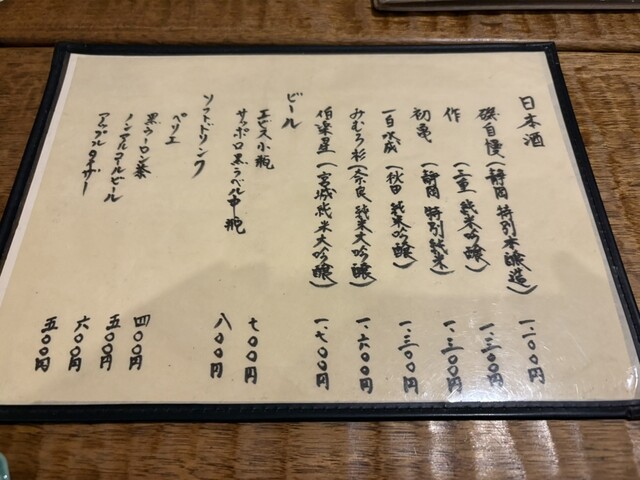 日本酒
磯自慢(静岡 特別本醸造) 一、二〇〇円
作 (三重 純米吟醸) 一、三〇〇円
初亀 (静岡 特別純米) 一、三〇〇円
一白水成 (秋田 純米吟醸) 一、三〇〇円
みむろ杉(奈良 純米大吟醸) 一、六〇〇円
伯楽星(宮城純米大吟醸) 一、七〇〇円
ビール
エビス小瓶 七〇〇円
サッポロ黒ラベル中瓶 八〇〇円
ソフトドリンク
ペリエ 四〇〇円
黒ウーロン茶 五〇〇円
ノンアルコールビール 六〇〇円
アップルタイザー 五〇〇円